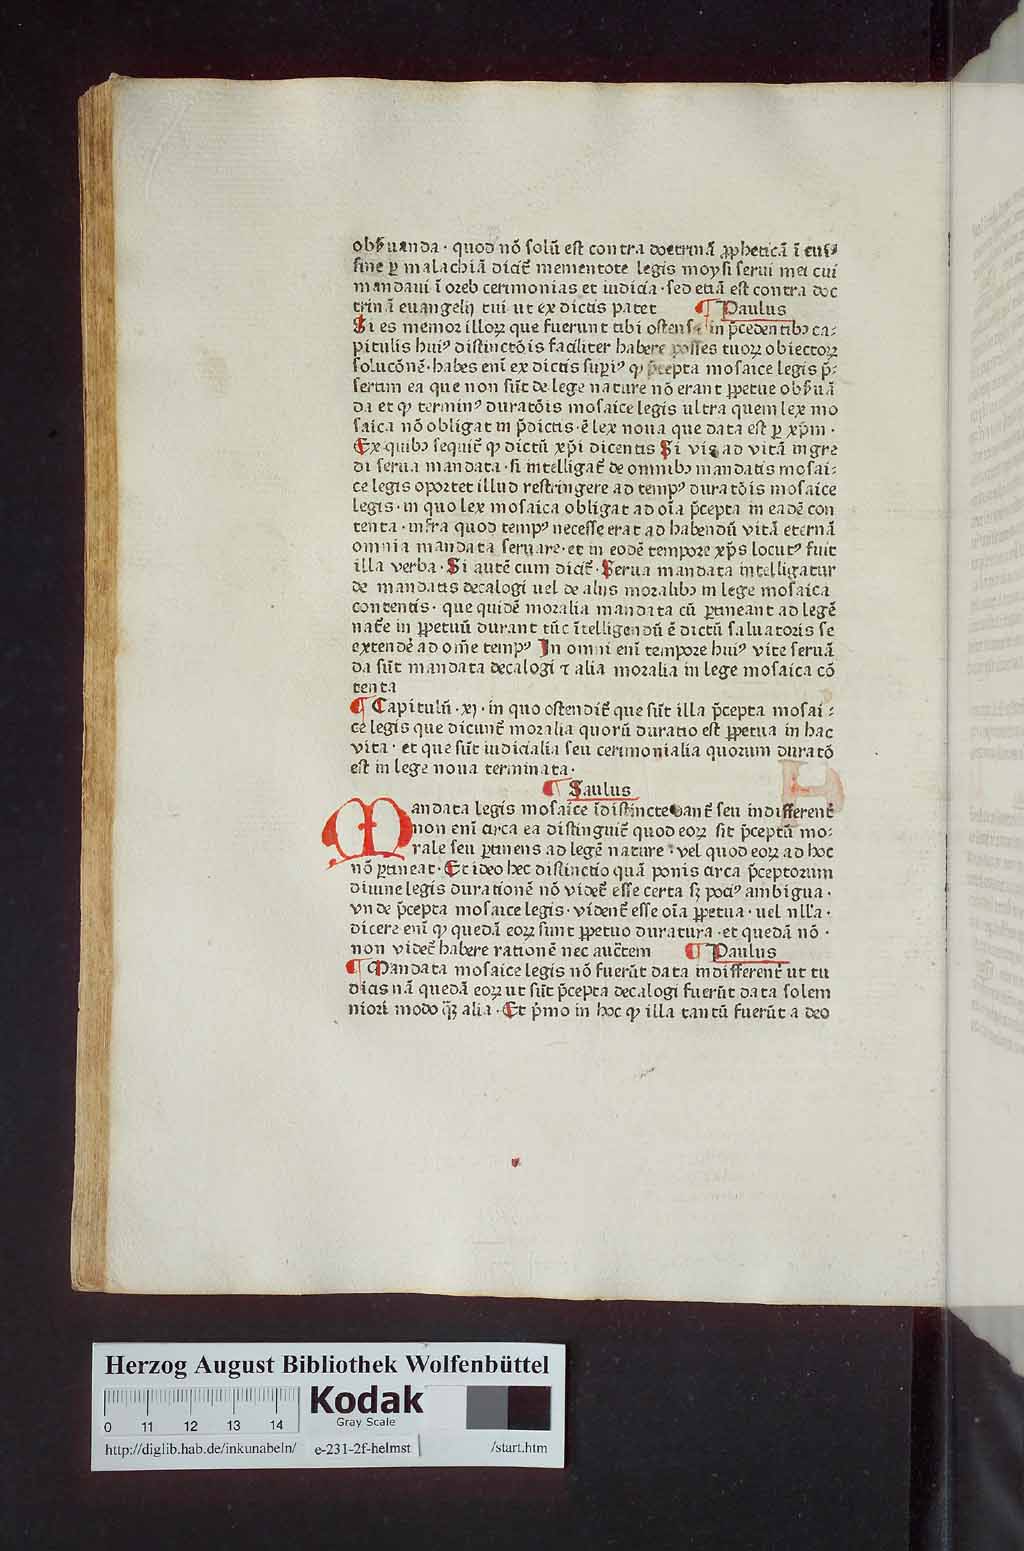 obẜuanda · quod nō ſolū eſt contra doctrinā ꝓpheticā ī cuiꝰ
fine ꝑ malachiā dicit̄ mementote legis moyſi ſerui mei cui
mandaui ī oreb cerimonias et iudicia · ſed etiā eſt contra doc
trinā euangelij tui ut ex dictis patet ¶ Paulus
Si es memor illoꝝ que fuerunt tibi oſtenſa in p̄cedentibꝫ ca⸗
pitulis huiꝰ diſtinctōis faciliter habere poſſes tuoꝝ obiectoꝝ
ſolucōnē · habes enī ex dictis ſuꝑiꝰ ꝙ p̄cepta moſaice legis p̄⸗
ſertim ea que non ſūt de lege nature nō erant ꝑpetue obẜuā
da et ꝙ terminꝰ duratōis moſaice legis ultra quem lex mo
ſaica nō obligat in p̄dictis · ē lex noua que data eſt ꝑ xp̄m ·
Ex quibꝫ ſequit̄ ꝙ dictū xp̄i dicentis Si vis ad vitā ingre
di ſerua mandata · ſi intelligat̄ de omnibꝫ mandatis moſai⸗
ce legis oportet illud reſtringere ad tempꝰ duratōis moſaice
legis · in quo lex moſaica obligat ad oīa p̄cepta in eadē con
tenta · infra quod tempꝰ neceſſe erat ad habendū vitā eternā
omnia mandata ſeruare · et in eodē tempore xp̄s locutꝰ fuit
illa verba · Si autē cum dicit̄ · Serua mandata intelligatur
de mandatis decalogi uel de alijs moralibꝫ in lege moſaica
contentis · que quidē moralia mandata cū ꝑtineant ad legē
nat̄e in ꝑpetuū durant tūc ītelligendū ē dictū ſaluatoris ſe
extendē ad om̄e tempꝰ In omni enī tempore huiꝰ vite ſeruā
da ſūt mandata decalogi ⁊ alia moralia in lege moſaica cō
tenta
¶ Capitulū · xj · in quo oſtendit̄ que ſūt illa p̄cepta moſai⸗
ce legis que dicunt̄ moralia quorū duratio eſt ꝑpetua in hac
vita · et que ſūt iudicialia ſeu cerimonialia quorum duratō
eſt in lege noua terminata ·
¶ Saulus
Mandata legis moſaice īdiſtincte dant̄ ſeu indifferent̄
non enī circa ea diſtinguit̄ quod eoꝝ ſit p̄ceptū mo⸗
rale ſeu ꝑtinens ad legē nature · vel quod eoꝝ ad hoc
nō ꝑtineat · Et ideo hec diſtinctio quā ponis circa p̄ceptorum
diuine legis durationē nō videt̄ eſſe certa ſꝫ pociꝰ ambigua ·
vnde p̄cepta moſaice legis · vident̄ eſſe oīa ꝑpetua · uel nll̄a ·
dicere enī ꝙ quedā eoꝝ ſunt ꝑpetuo duratura · et quedā nō ·
non videt̄ habere rationē nec auct̄em ¶ Paulus
¶ Mandata moſaice legis nō fuerūt data indifferent̄ ut tu
dicis nā quedā eoꝝ ut ſūt p̄cepta decalogi fuerūt data ſolem
niori modo q̄ꝫ alia · Et p̄mo in hoc ꝙ illa tantū fuerūt a deo
Herzog August Bibliothek Wolfenbüttel
Kodak
Gray Scale
0 11 12 13 14
http://diglib.hab.de/inkunabeln/ e-231-2f-helmst /start.htm